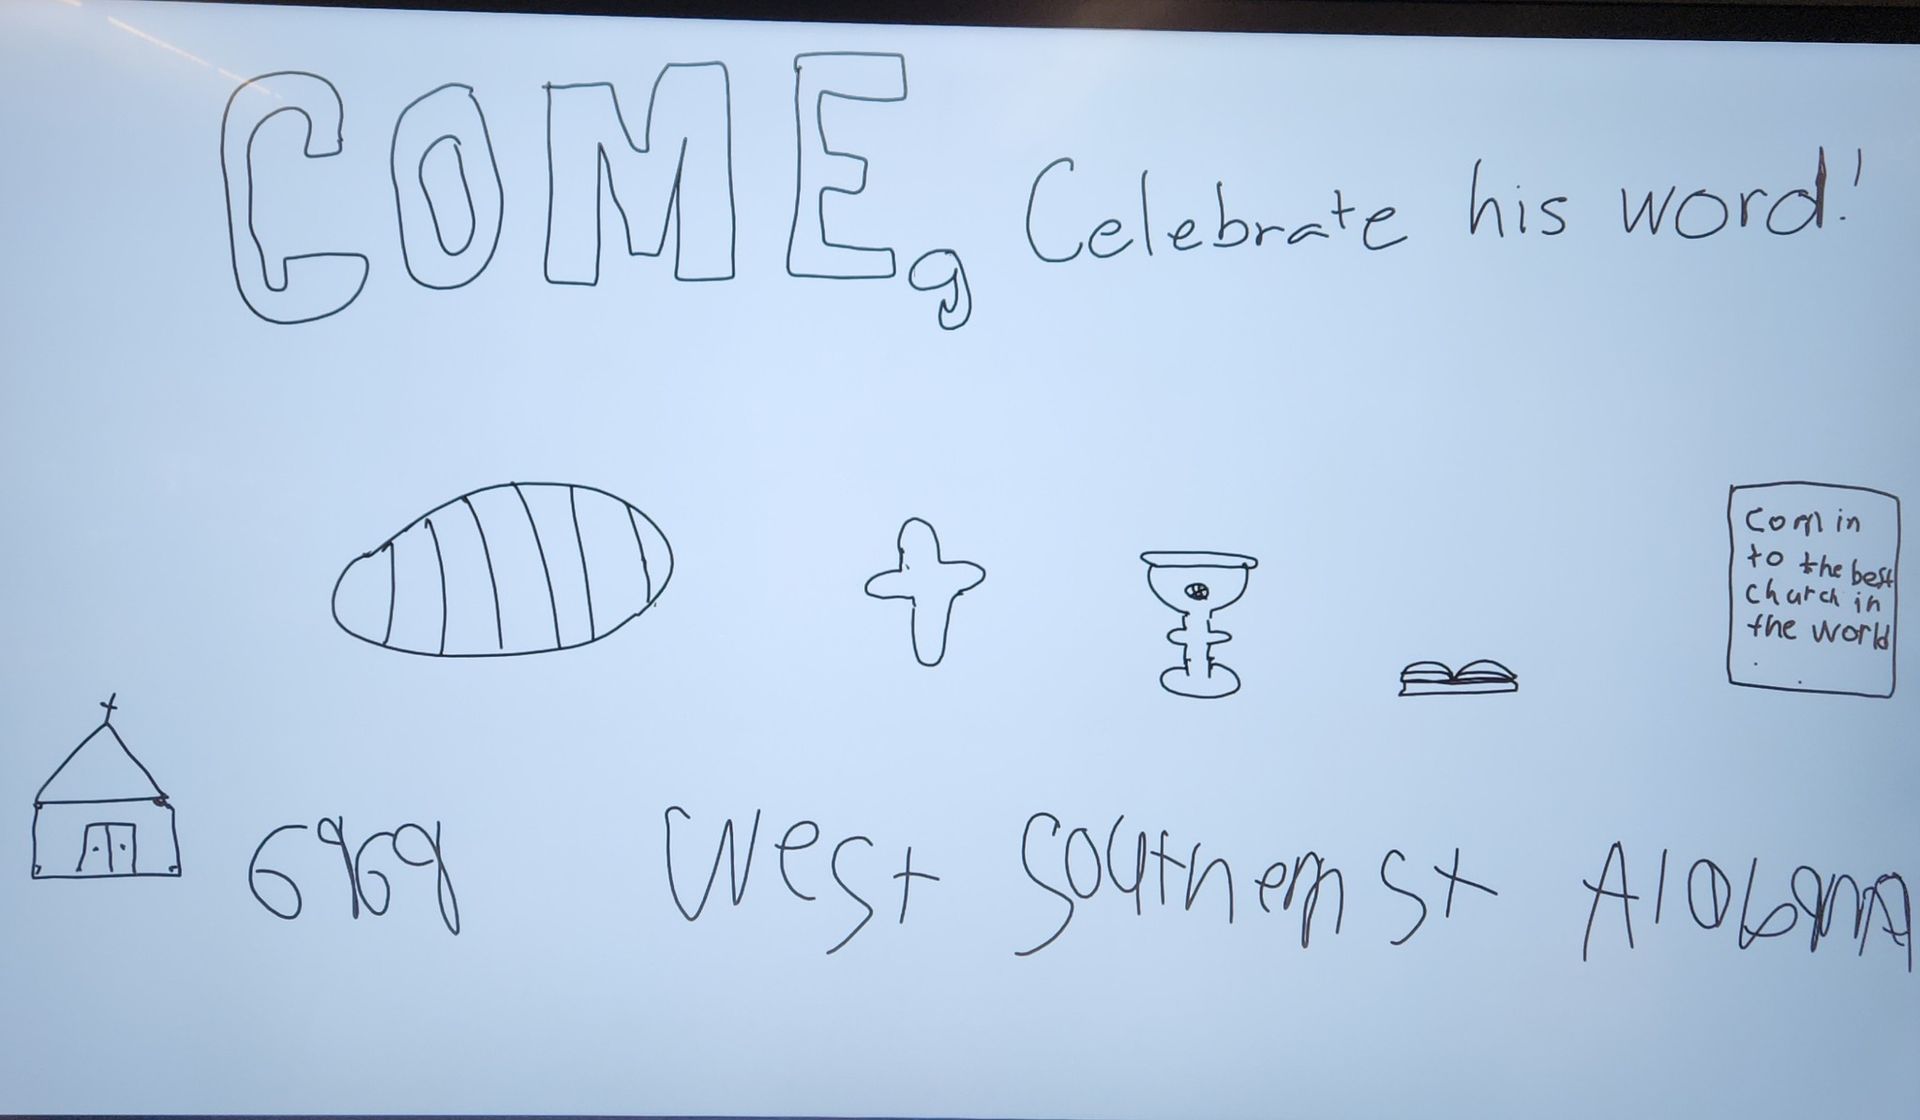 COME, Celebrate his word!
Com in
to the best
church in
the world
6969 West Southern St